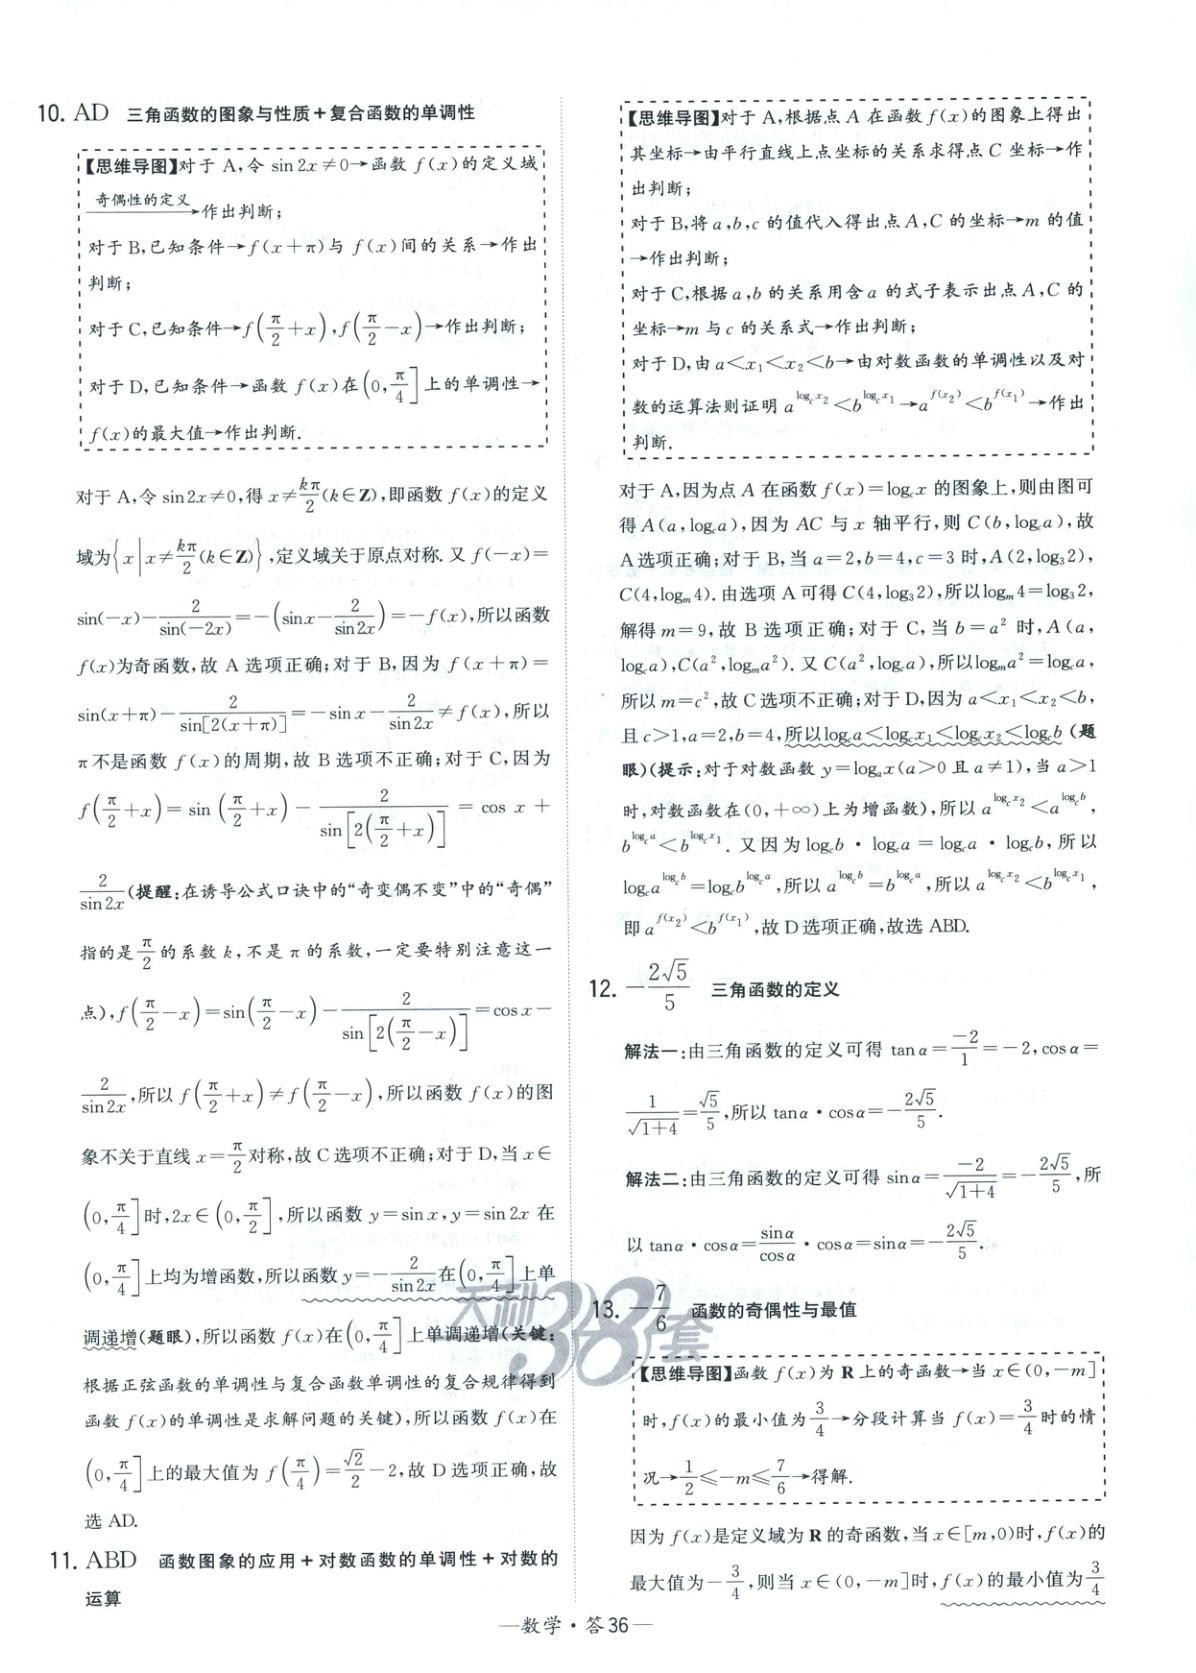 10. AD 三角函数的图象与性质+复合函数的单调性
【思维导图】对于 A,令 sin 2x≠0→函数 f(x)的定义域
奇偶性的定义→作出判断;
对于 B,已知条件→f(x+π)与 f(x)间的关系→作出
判断;
对于 C,已知条件→f(π/2+x),f(π/2-x)→作出判断;
对于 D,已知条件→函数 f(x)在(0,π/4]上的单调性→
f(x)的最大值→作出判断.
对于 A,令 sin2x≠0,得 x≠kπ/2(k∈Z),即函数 f(x)的定义
域为{x|x≠kπ/2(k∈Z)},定义域关于原点对称.又 f(-x)=
sin(-x)-2/sin(-2x)=-(sinx-2/sin2x)=-f(x),所以函数
f(x)为奇函数,故 A 选项正确;对于 B,因为 f(x+π)=
sin(x+π)-2/sin[2(x+π)]=-sin x-2/sin2x≠f(x),所以
π不是函数 f(x)的周期,故 B 选项不正确;对于 C,因为
f(π/2+x)=sin(π/2+x)-2/sin[2(π/2+x)]=cos x+
2/sin2x(提醒:在诱导公式口诀中的“奇变偶不变”中的“奇偶”
指的是π/2的系数 k,不是 π 的系数,一定要特别注意这一
点),f(π/2-x)=sin(π/2-x)-2/sin[2(π/2-x)]=cos x-
2/sin2x,所以 f(π/2+x)≠f(π/2-x),所以函数 f(x)的图
象不关于直线 x=π/2对称,故 C 选项不正确;对于 D,当 x∈
(0,π/4]时,2x∈(0,π/2],所以函数 y=sin x,y=sin 2x 在
(0,π/4]上均为增函数,所以函数 y=-2/sin2x在(0,π/4]上单
调递增(题眼),所以函数 f(x)在(0,π/4]上单调递增(关键:
根据正弦函数的单调性与复合函数单调性的复合规律得到
函数 f(x)的单调性是求解问题的关键),所以函数 f(x)在
(0,π/4]上的最大值为 f(π/4)=√2/2-2,故 D 选项正确,故
选 AD.
11. ABD 函数图象的应用+对数函数的单调性+对数的
运算
【思维导图】对于 A,根据点 A 在函数 f(x)的图象上得出
其坐标→由平行直线上点坐标的关系求得点 C 坐标→作
出判断;
对于 B,将 a,b,c 的值代入得出点 A,C 的坐标→m 的值
→作出判断;
对于 C,根据 a,b 的关系用含 a 的式子表示出点 A,C 的
坐标→m 与 c 的关系式→作出判断;
对于 D,由 a<x₁<x₂<b→由对数函数的单调性以及对
数的运算法则证明 a^(log_c x₂)<b^(log_c x₁)→a^(f(x₂))<b^(f(x₁))→作出
判断.
对于 A,因为点 A 在函数 f(x)=log_c x 的图象上,则由图可
得 A(a,log_c a),因为 AC 与 x 轴平行,则 C(b,log_c a),故
A 选项正确;对于 B,当 a=2,b=4,c=3 时,A(2,log₃2),
C(4,log_m 4).由选项 A 可得 C(4,log₃2),所以log_m 4=log₃2,
解得 m=9,故 B 选项正确;对于 C,当 b=a² 时,A(a,
log_c a),C(a²,log_m a²).又 C(a²,log_c a),所以log_m a²=log_c a,
所以 m=c²,故 C 选项不正确;对于 D,因为 a<x₁<x₂<b,
且 c>1,a=2,b=4,所以log_c a<log_c x₁<log_c x₂<log_c b(题
眼)(提示:对于对数函数 y=log_a x(a>0 且 a≠1),当 a>1
时,对数函数在(0,+∞)上为增函数),所以 a^(log_c x₂)<a^(log_c b),
b^(log_c a)<b^(log_c x₁).又因为 log_c b·log_c a=log_c a·log_c b,所以
log_c a^(log_c b)=log_c b^(log_c a),所以 a^(log_c b)=b^(log_c a),所以 a^(log_c x₂)<b^(log_c x₁),
即 a^(f(x₂))<b^(f(x₁)),故 D 选项正确,故选 ABD.
12. -2√5/5 三角函数的定义
解法一:由三角函数的定义可得 tan α=-2/1=-2,cos α=
1/√(1+4)=√5/5,所以 tanα·cosα=-2√5/5.
解法二:由三角函数的定义可得 sinα=-2/√(1+4)=-2√5/5,所
以 tanα·cosα=sinα/cosα·cosα=sinα=-2√5/5.
13. -7/6 函数的奇偶性与最值
【思维导图】函数 f(x)为 R 上的奇函数→当 x∈(0,-m]
时,f(x)的最小值为3/4→分段计算当 f(x)=3/4时的情
况→1/2≤-m≤7/6→得解.
因为 f(x)是定义域为 R 的奇函数,当 x∈[m,0)时,f(x)的
最大值为-3/4,则当 x∈(0,-m]时,f(x)的最小值为3/4
天利38套
—数学·答36—